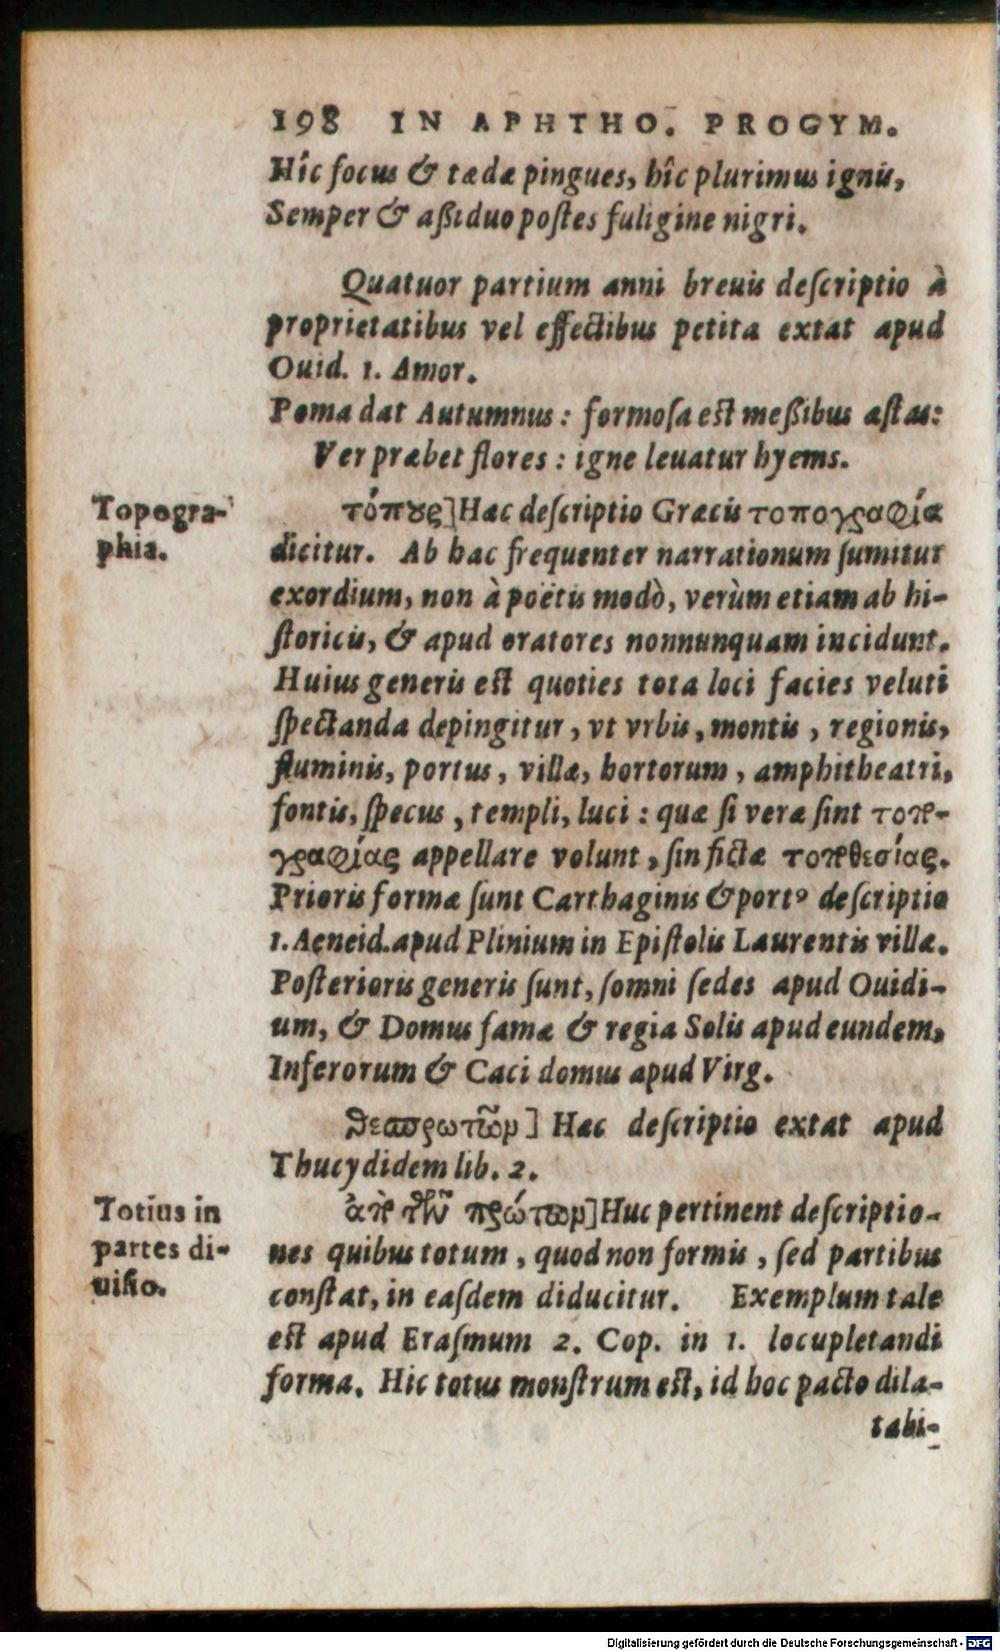 198 IN APHTHO. PROGYM.
Hîc focus & tædæ pingues, hîc plurimus ignis,
Semper & aßiduo postes fuligine nigri.
Quatuor partium anni breuis descriptio à
proprietatibus vel effectibus petita extat apud
Ouid. 1. Amor.
Poma dat Autumnus: formosa est meßibus æstas:
Ver præbet flores: igne leuatur hyems.
Topogra-
phia.
τόπȣς] Hæc descriptio Græcis τοπογραφία
dicitur. Ab hac frequenter narrationum sumitur
exordium, non à poëtis modò, verùm etiam ab hi-
storicis, & apud oratores nonnunquam incidunt.
Huius generis est quoties tota loci facies veluti
spectanda depingitur, vt vrbis, montis, regionis,
fluminis, portus, villæ, hortorum, amphitheatri,
fontis, specus, templi, luci: quæ si vera sint τοπο-
γραφίας appellare volunt, sin fictæ τοποθεσίας.
Prioris formæ sunt Carthaginis & portꝰ descriptio
1. Aeneid. apud Plinium in Epistolis Laurentis villæ.
Posterioris generis sunt, somni sedes apud Ouidi-
um, & Domus famæ & regia Solis apud eundem,
Inferorum & Caci domus apud Virg.
Θεασρωτῶν] Hæc descriptio extat apud
Thucydidem lib. 2.
Totius in
partes di-
uisio.
ἀπὸ τῶν πρώτων] Huc pertinent descriptio-
nes quibus totum, quod non formis, sed partibus
constat, in easdem diducitur. Exemplum tale
est apud Erasmum 2. Cop. in 1. locupletandi
forma. Hic totus monstrum est, id hoc pacto dila-
tabi-
Digitalisierung gefördert durch die Deutsche Forschungsgemeinschaft - DFG